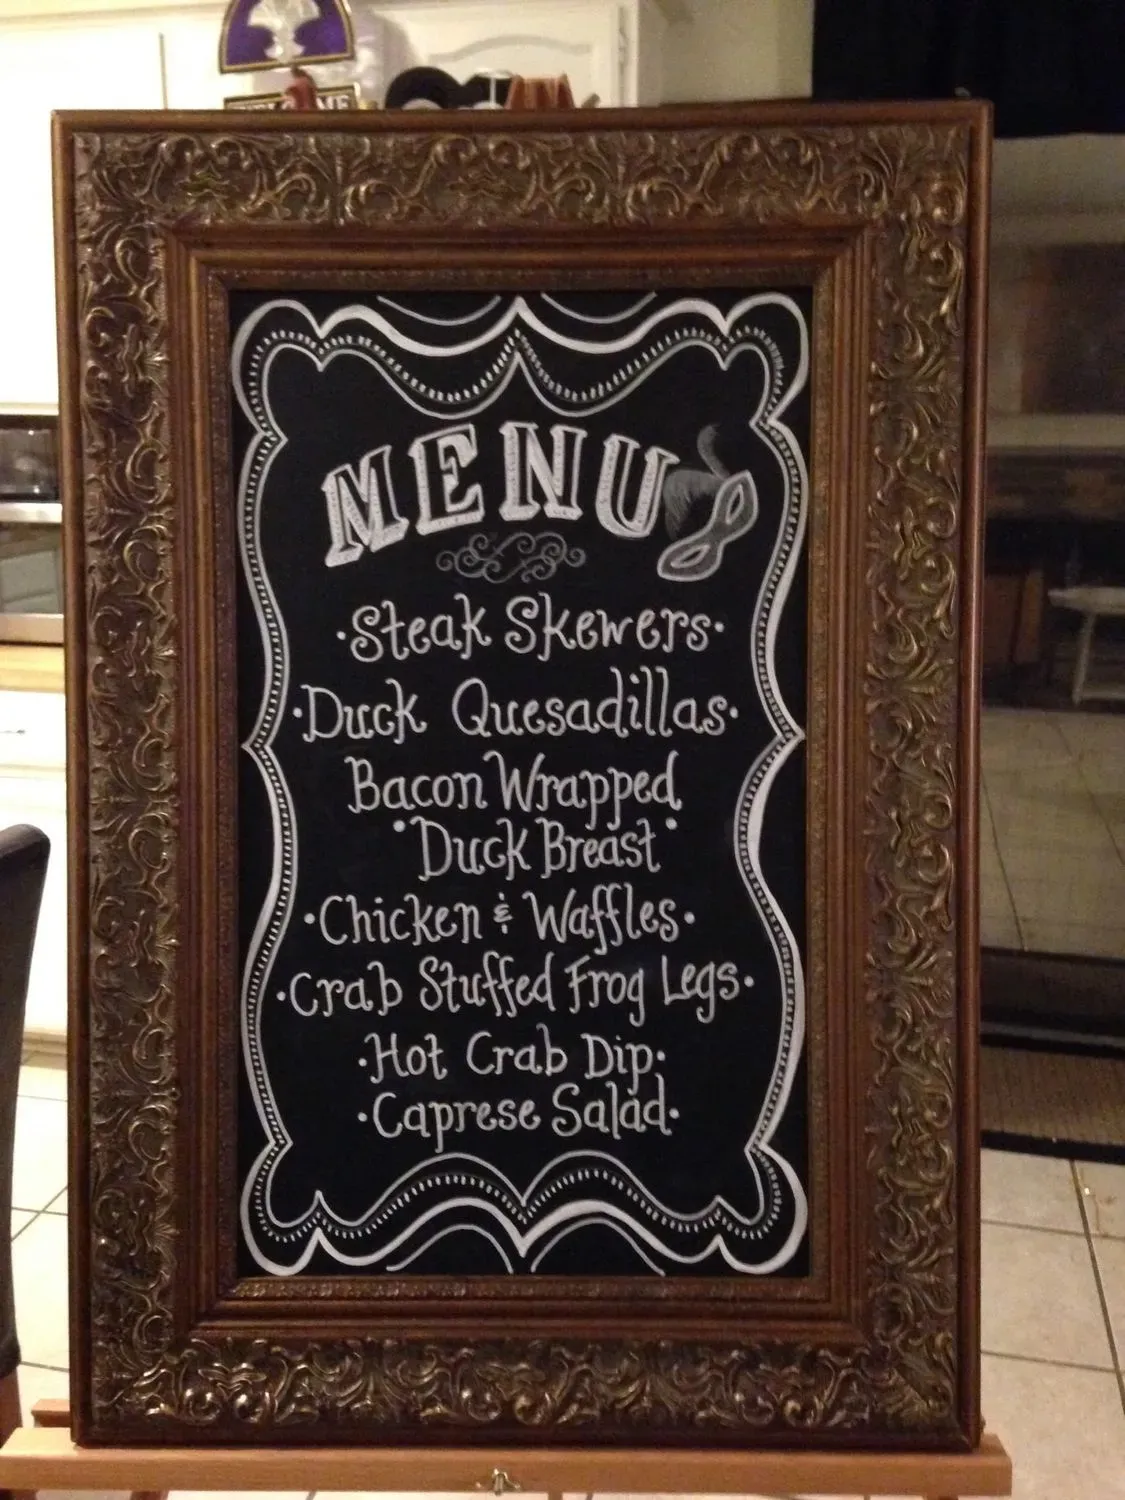 MENU
·Steak Skewers·
·Duck Quesadillas·
Bacon Wrapped
·Duck Breast·
·Chicken & Waffles·
·Crab Stuffed Frog Legs·
·Hot Crab Dip·
·Caprese Salad·